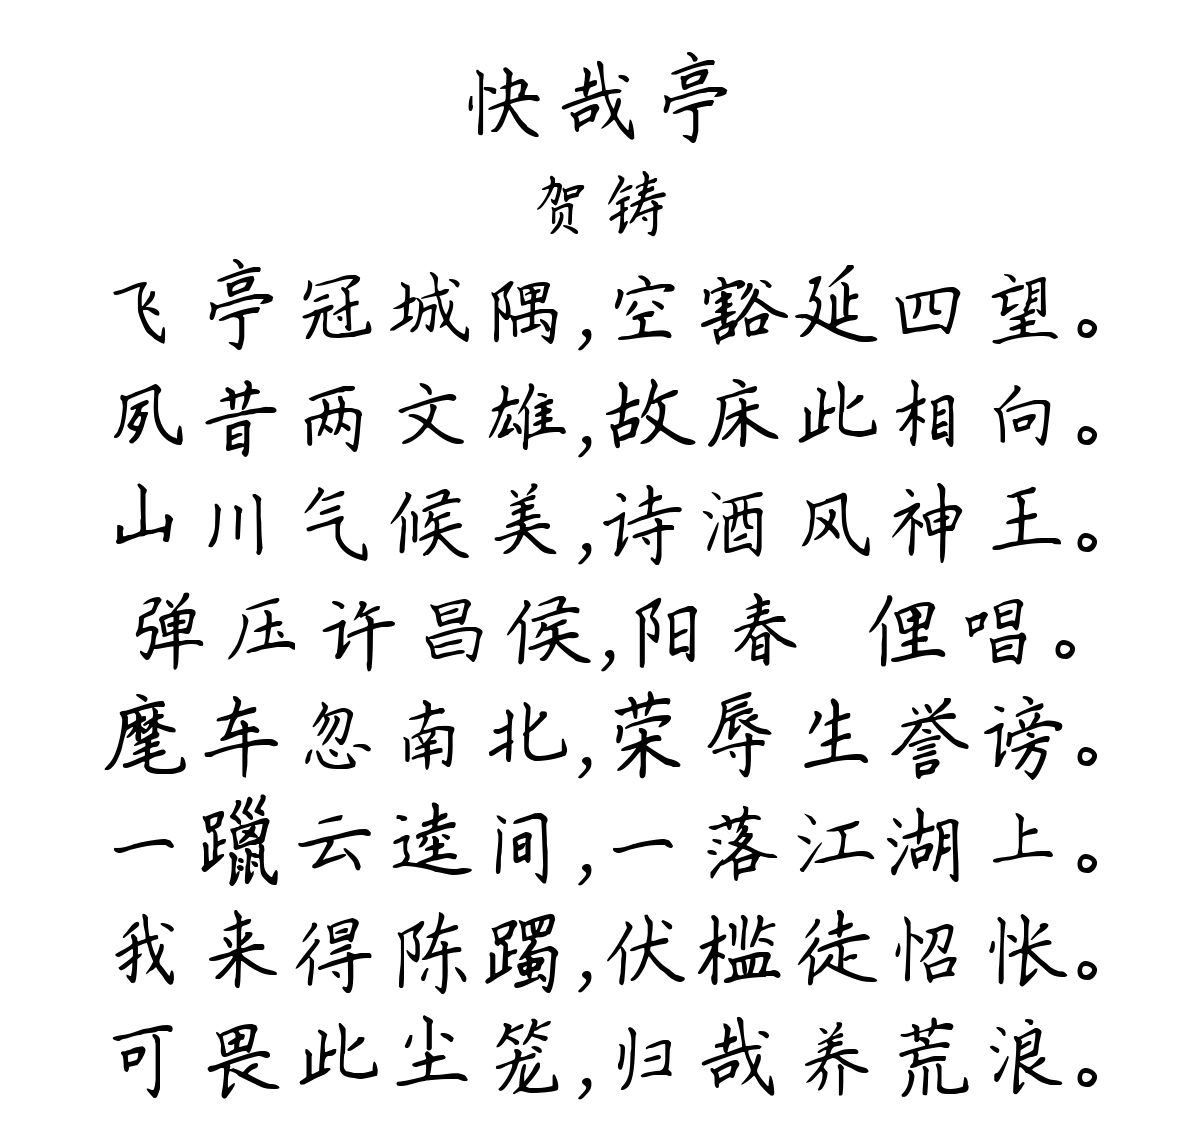 快哉亭
贺铸
飞亭冠城隅,空豁延四望。
夙昔两文雄,故床此相向。
山川气候美,诗酒风神王。
弹压许昌侯,阳春 俚唱。
麾车忽南北,荣辱生誉谤。
一躐云逵间,一落江湖上。
我来得陈躅,伏槛徒怊怅。
可畏此尘笼,归哉养荒浪。